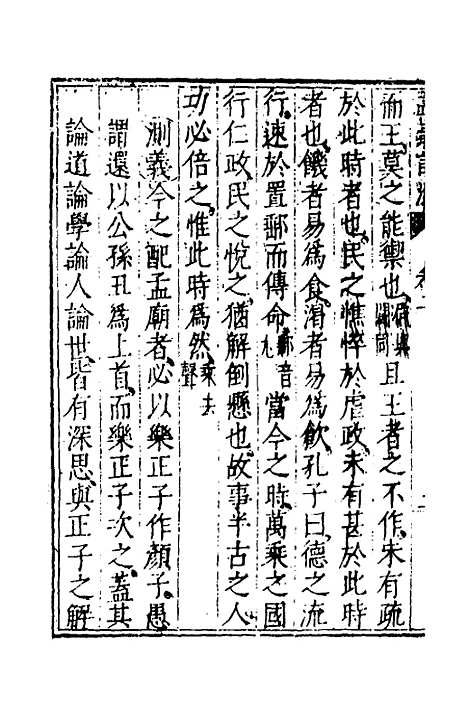 而王莫之能禦也且王者之不作未有疏
於此時者也民之憔悴於虐政未有甚於此時
者也饑者易爲食渴者易爲飲孔子曰德之流
行速於置郵而傳命郵音尤當今之時萬乘之國
行仁政民之悅之猶解倒懸也故事半古之人
功必倍之惟此時爲然乘去聲
測義今之配孟廟者必以樂正子作顏子愚
謂還以公孫丑爲上首而樂正子次之蓋其
論道論學論人論世皆有深思與正子之解